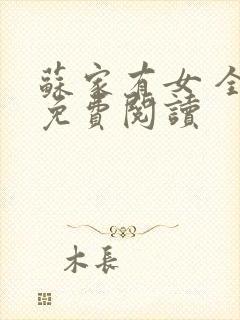 蘇家有女 全
免費閱讀
木長